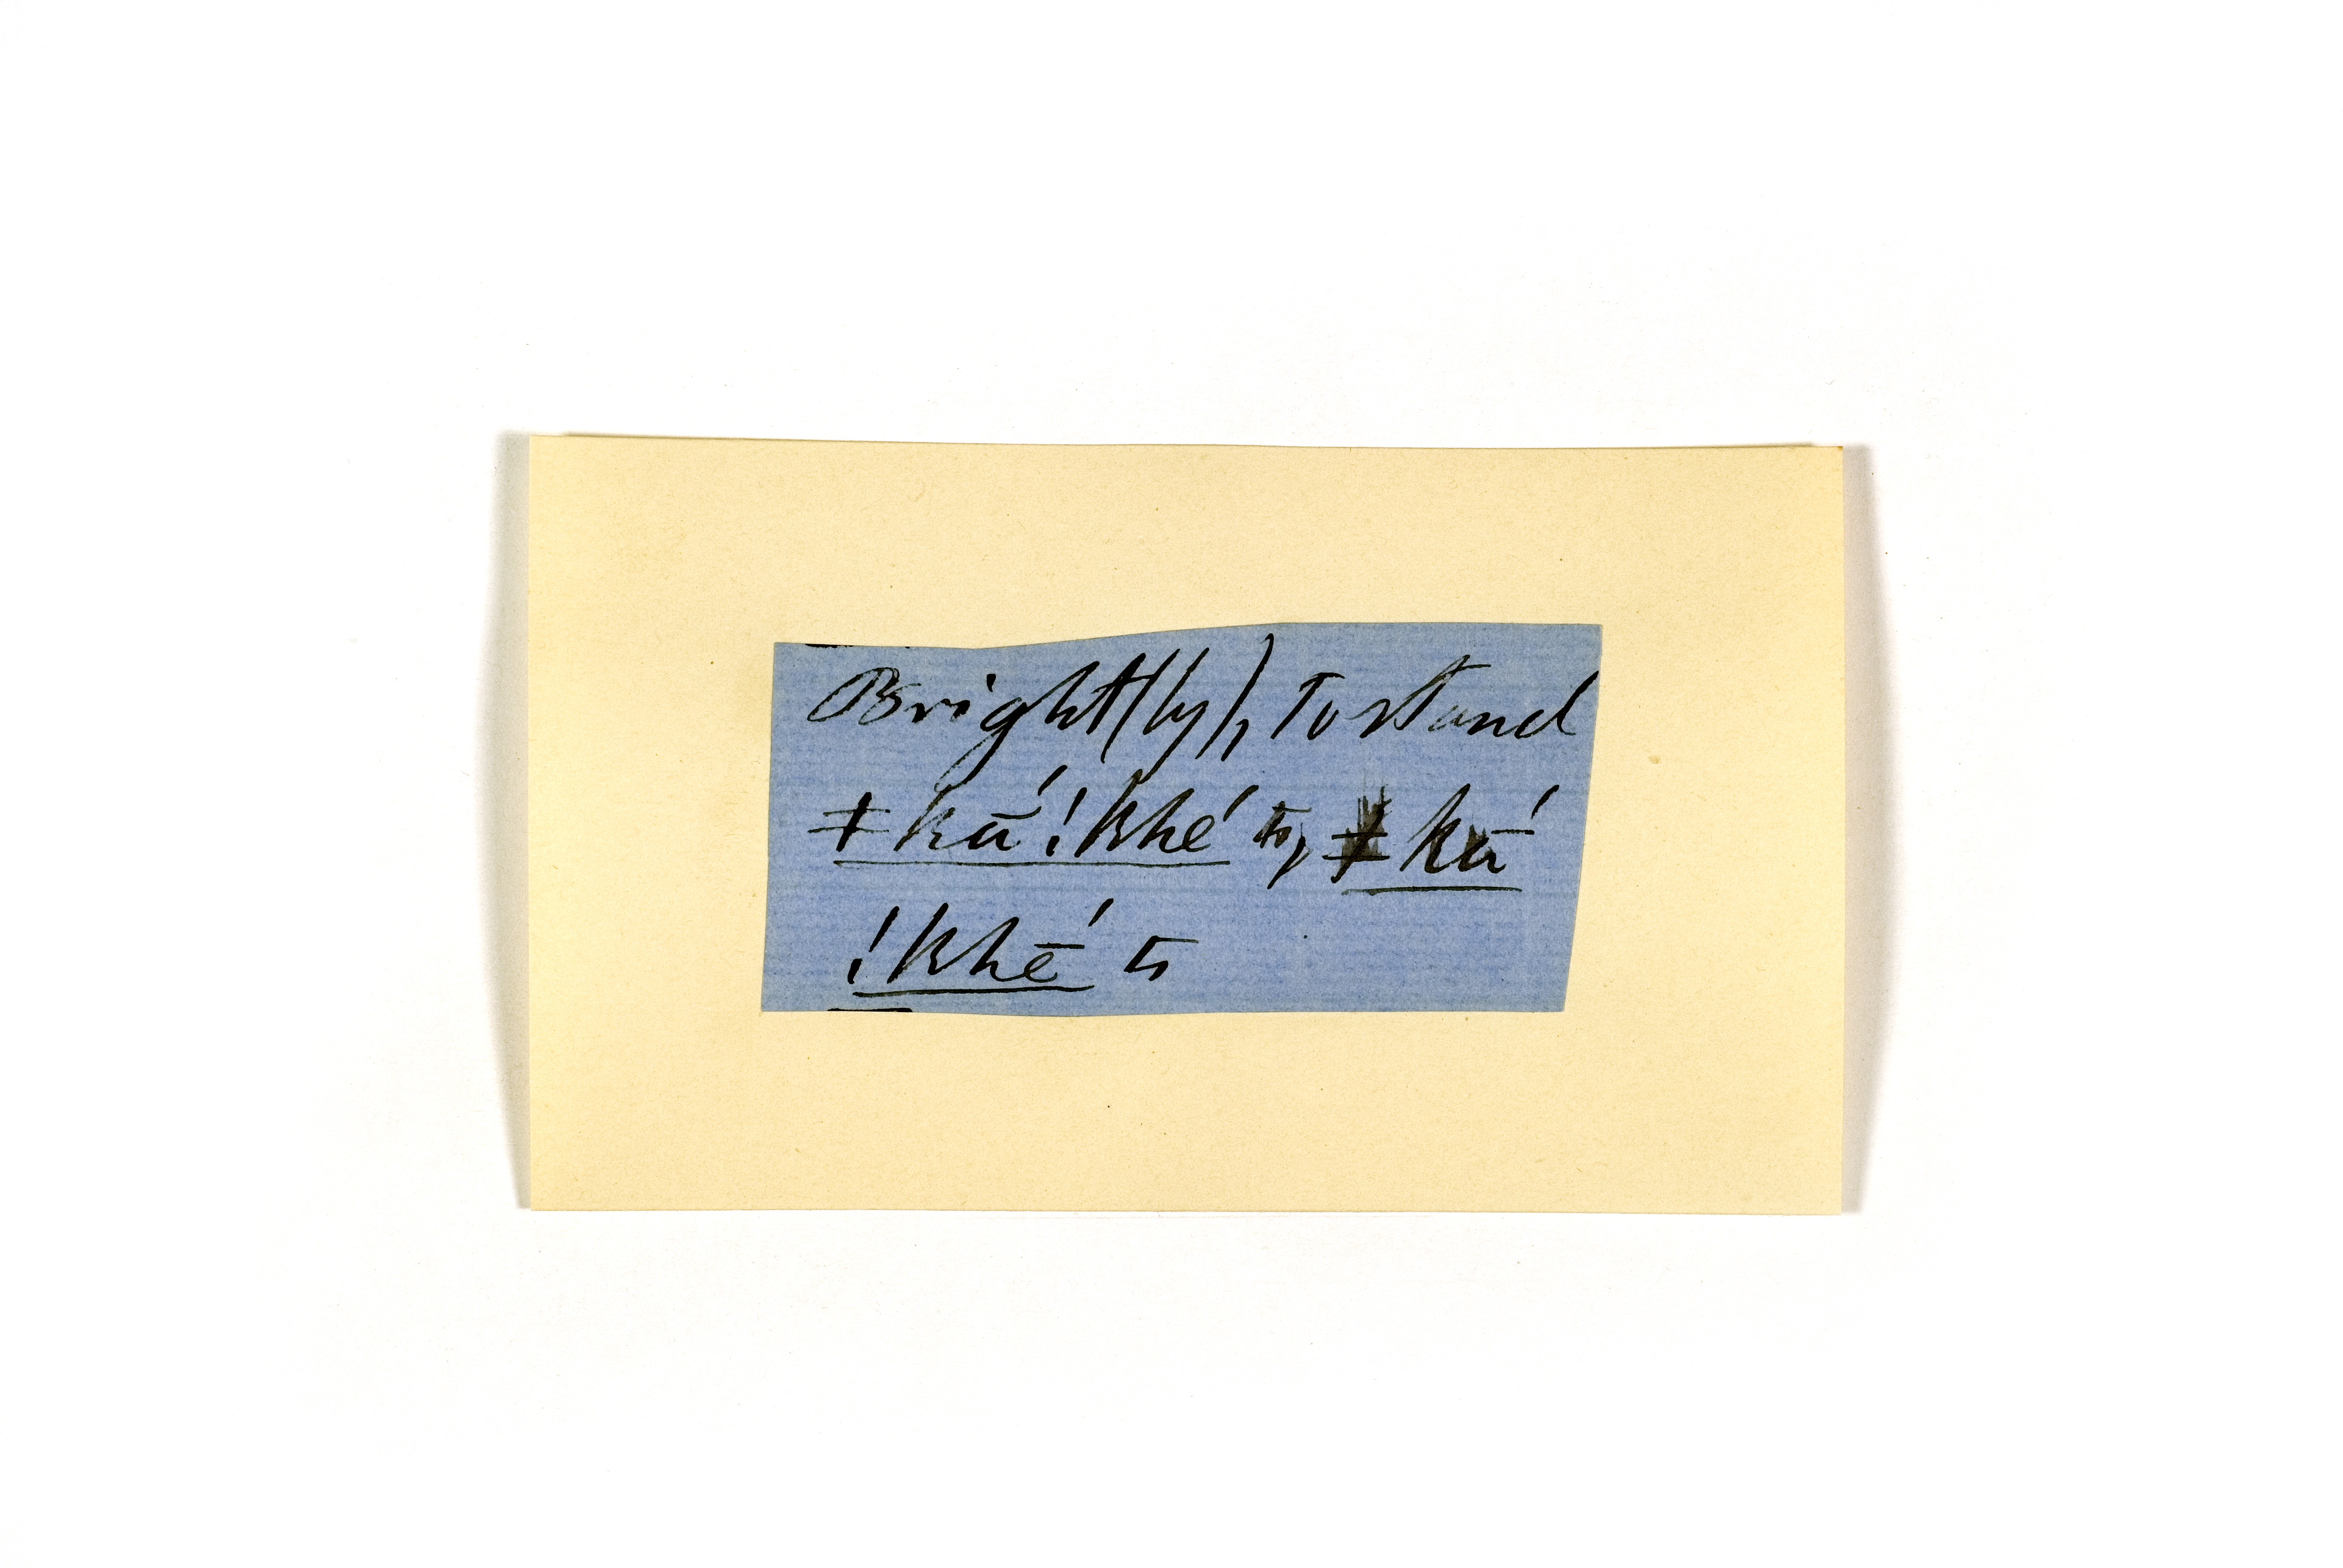 Bright(ly), To stand
ǂkā́!khé to, ǂkā́
!khḗ to